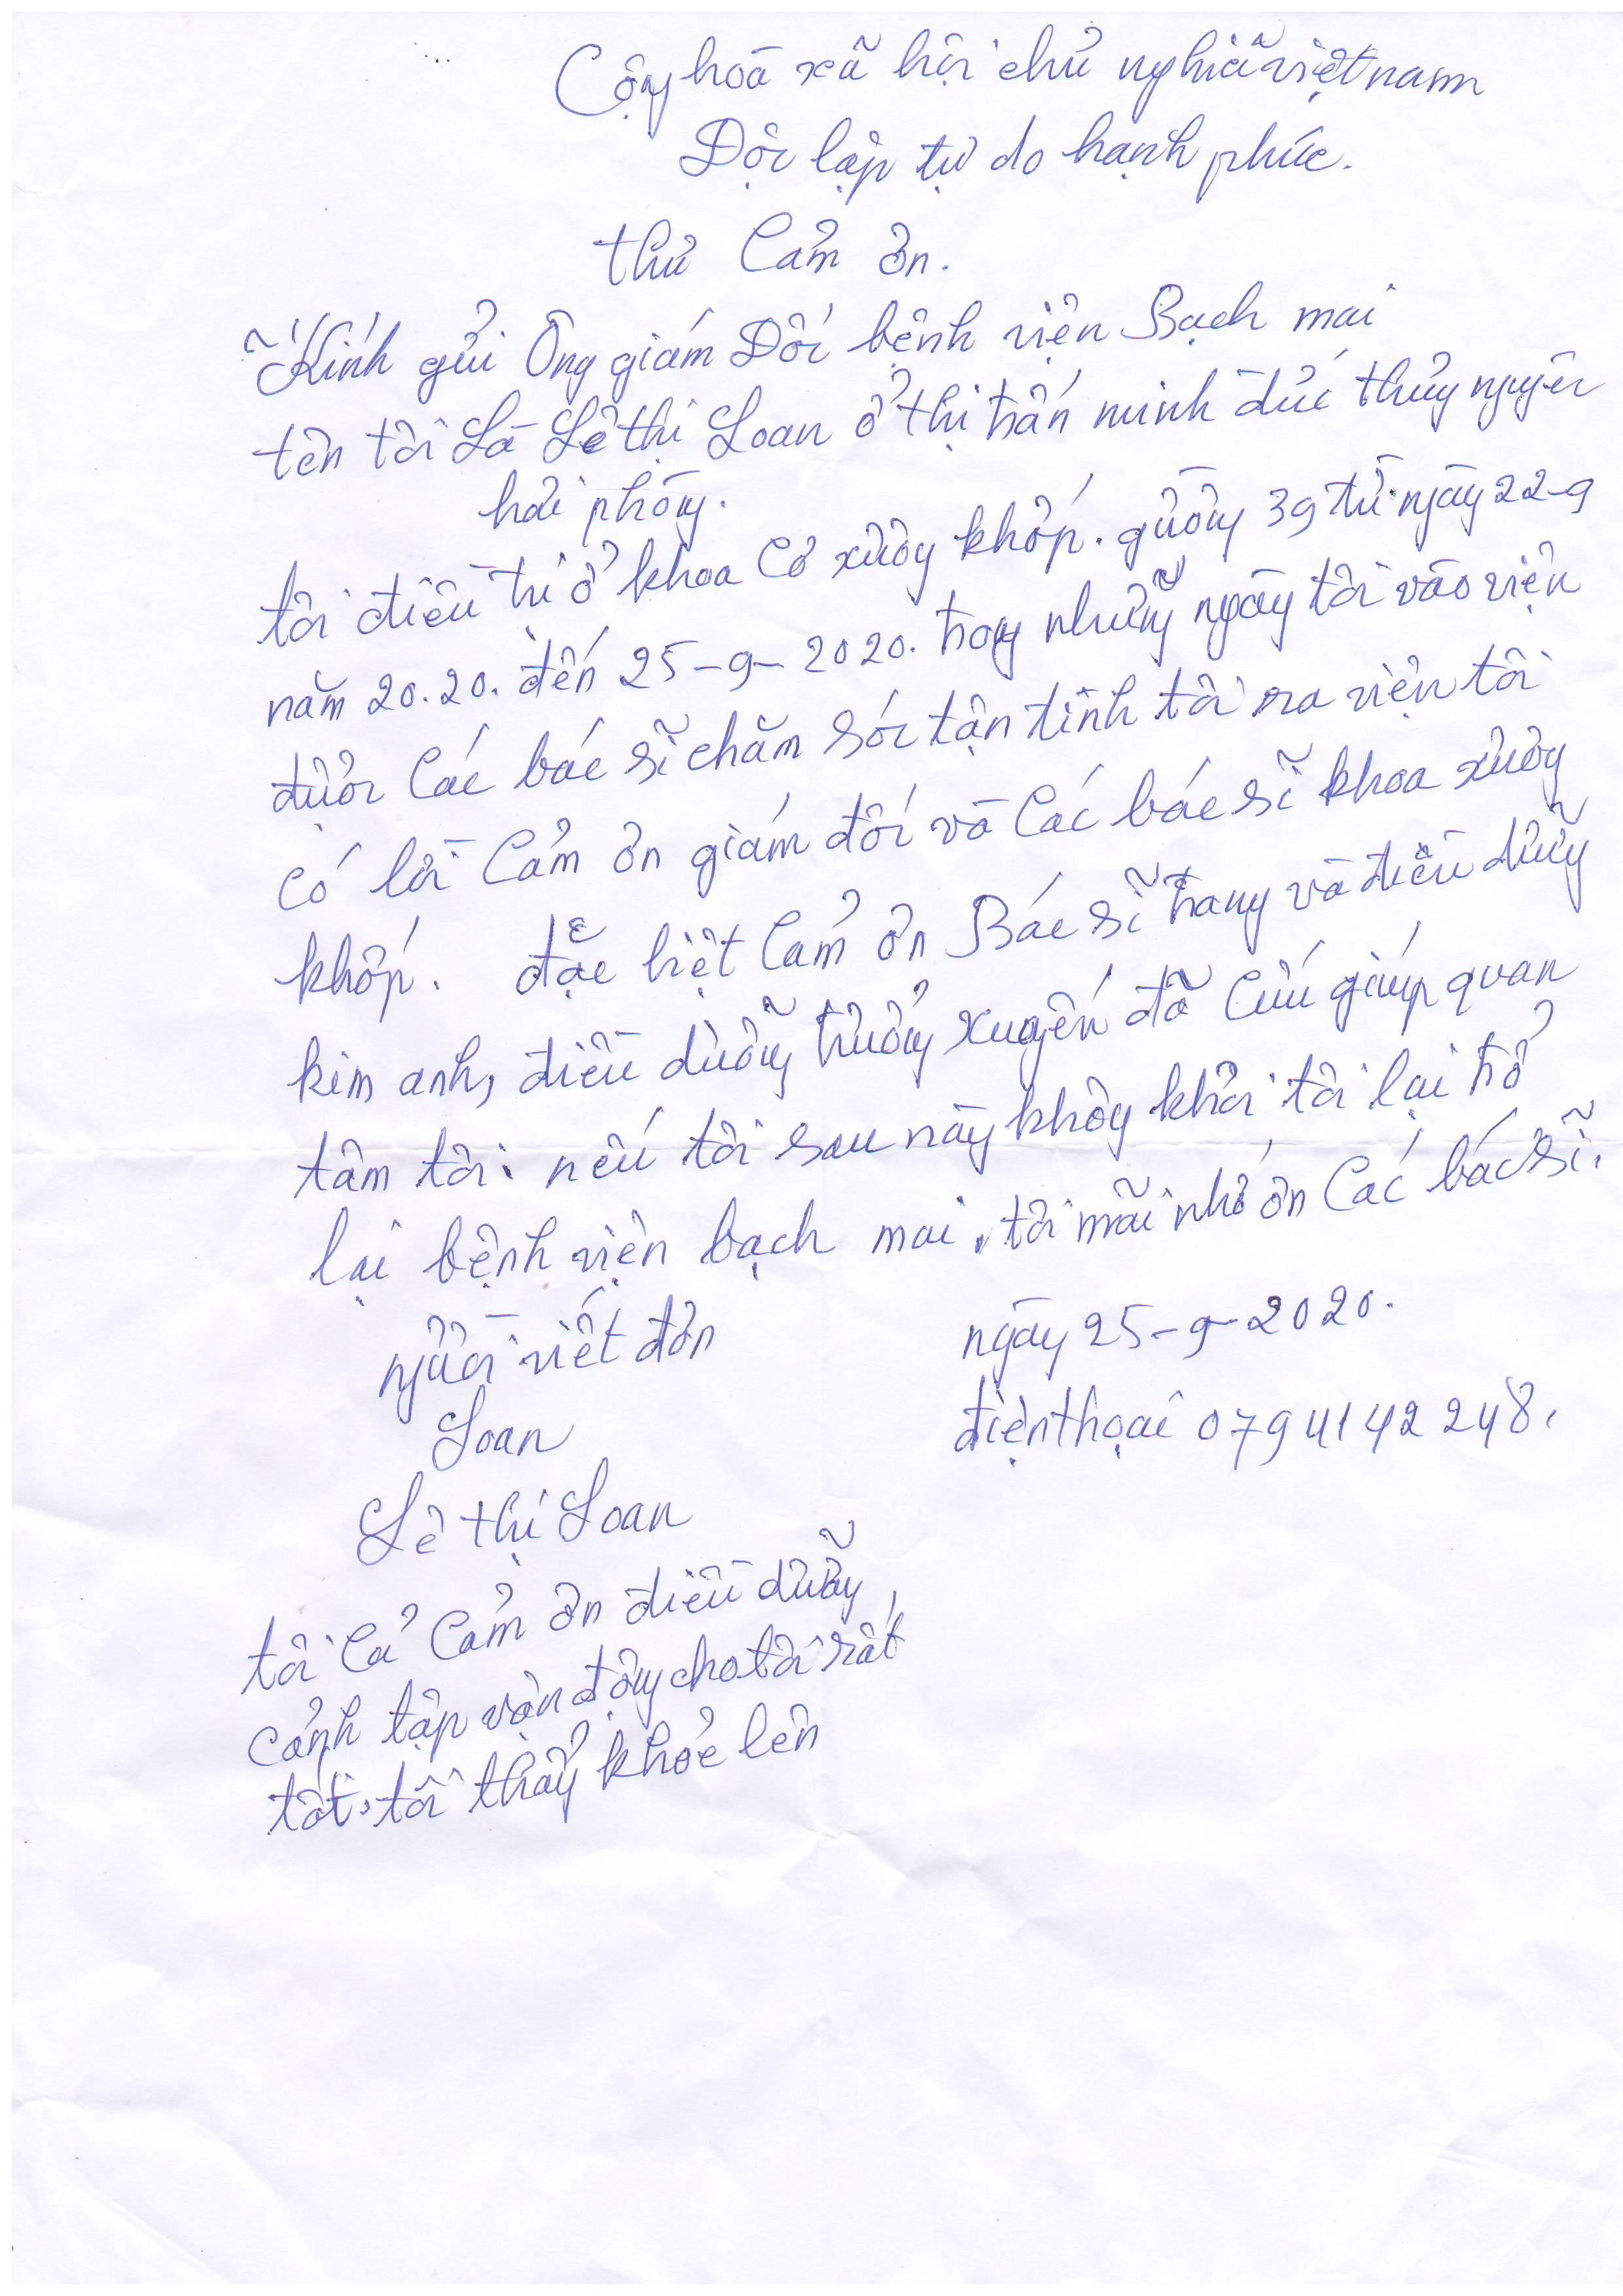 Cộng hoà xã hội chủ nghiã việt nam
Độc lập tự do hạnh phúc.
thư Cảm ơn.
Kính gửi Ông giám Đốc bệnh viện Bạch mai
tên tôi Là Lê thị Loan ở thị trấn minh đức thủy nguyên
hải phòng.
tôi điều trị ở khoa Cơ xương khớp. giường 39 từ ngày 22-9
năm 20.20. đến 25-9-2020. trong những ngày tôi vào viện
được Các bác sĩ chăm sóc tận tình tôi ra viện tôi
Có lời Cảm ơn giám đốc và Các bác sĩ khoa xương
khớp. đặc biệt Cảm ơn Bác sĩ trang và điều dưỡng
kim anh, điều dưỡng trưởng xuyến đã Cứu giúp quan
tâm tôi. nếu tôi sau này không khỏi tôi lại trở
lại bệnh viện bạch mai, tôi mãi nhớ ơn Các bác sĩ.
người viết đơn
ngày 25-9-2020.
Loan
điện thoại 0794142248.
Lê thị Loan
tôi Cả Cảm ơn điều dưỡng
cảnh tập vận động cho tôi rất
tốt, tôi thấy khỏe lên